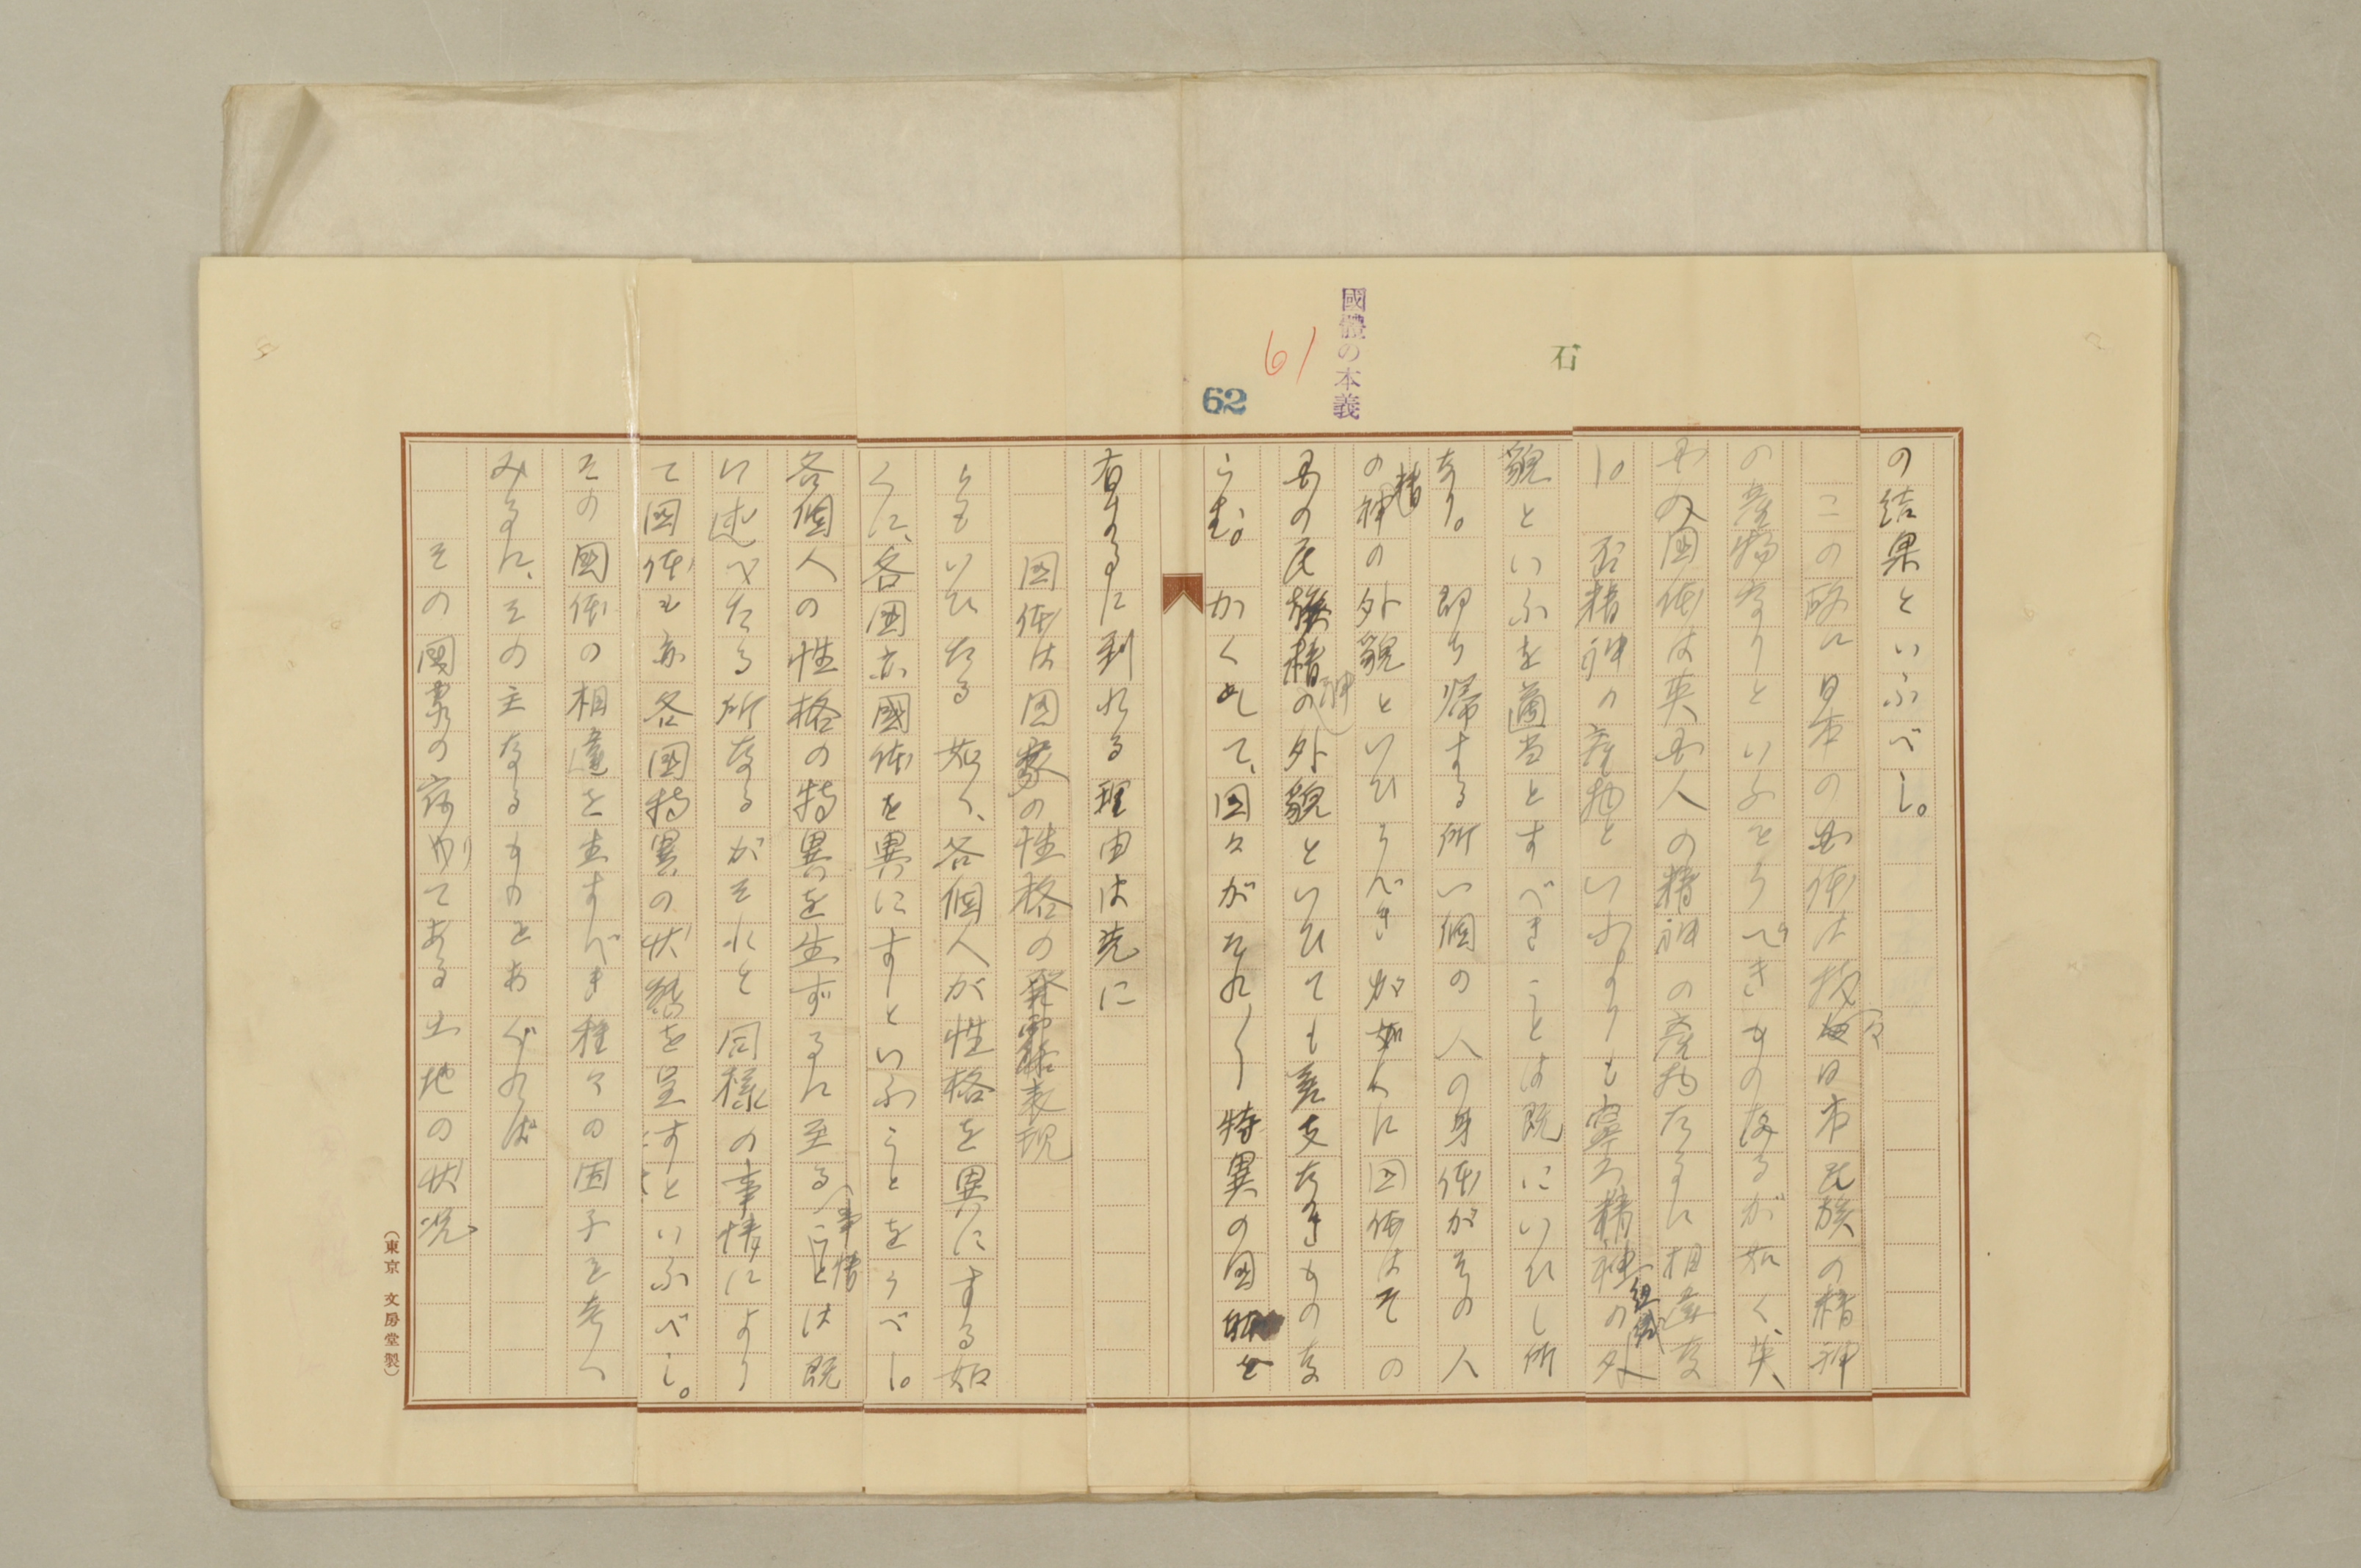 國體の本義
石
61
62
の結果といふべし。
この故に日本の国体は日本民族の精神
の産物なりといふをうべきものなるが如く、英
国の国体は英国人の精神の産物たるに相違な
し。否精神の産物といふよりも寧ろ精神の組織外
貌といふを適当とすべきことは既にいひし所
なり。即ち帰する所一個の人の身体がその人
の精神の外貌といひうべきが如くに国体はその
国の民族精神の外貌といひても差支なきものな
らむ。かくして、国々がそれ〱特異の国体を
有するに到れる理由は先に
国体は国家の性格の発露表現
ともいひたる如く、各個人が性格を異にする如
くに、各国亦國体を異にすといふことをうべし。
各個人の性格の特異を生ずるに至る事情は既
に述べたる所なるがそれと同様の事情により
て国体も亦各国特異の状態を呈すといふべし。
その國体の相違を生すべき種々の因子を考へ
みるに、その主なるものをあぐれば
その國家の てある土地の状況
(東京 文房堂製)